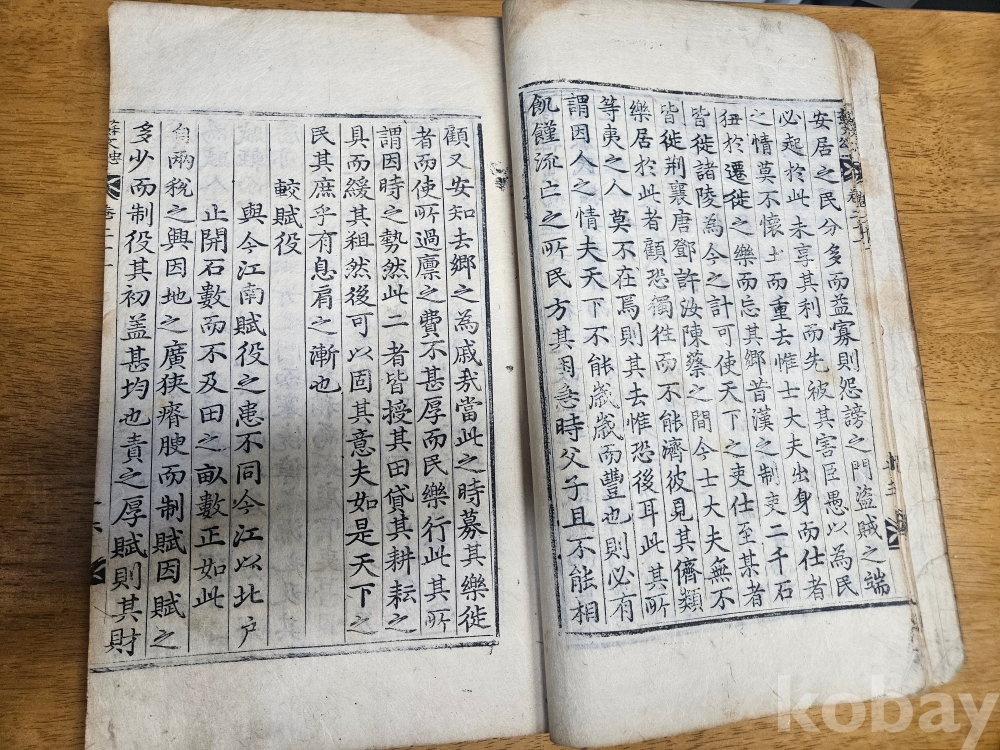 安居之民分多而益寡則怨謗之門盜賊之端
必起於此未享其利而先被其害臣愚以為民
之情莫不懷土而重去惟士大夫出身而仕者
狃於遷徙之樂而忘其鄉昔漢之制吏二千石
皆徙諸陵為今之計可使天下之吏仕至某者
皆徙荆襄唐鄧許汝陳蔡之間今士大夫無不
樂居於此者顧恐獨徃而不能濟彼見其儕類
等夷之人莫不在焉則其去惟恐後耳此其所
謂因人之情夫天下不能歲歲而豐也則必有
飢饉流亡之所民方其困急時父子且不能相
顧又安知去鄉之為戚㢤當此之時募其樂徙
者而使所過廪之費不甚厚而民樂行此其所
謂因時之勢然此二者皆授其田貸其耕耘之
具而緩其租然後可以固其意夫如是天下之
民其庶乎有息肩之漸也
較賦役
與今江南賦役之患不同今江以北户
止開石數而不及田之畝數正如此
自兩稅之興因地之廣狹瘠腴而制賦因賦之
多少而制役其初盖甚均也責之厚賦則其財
kobay